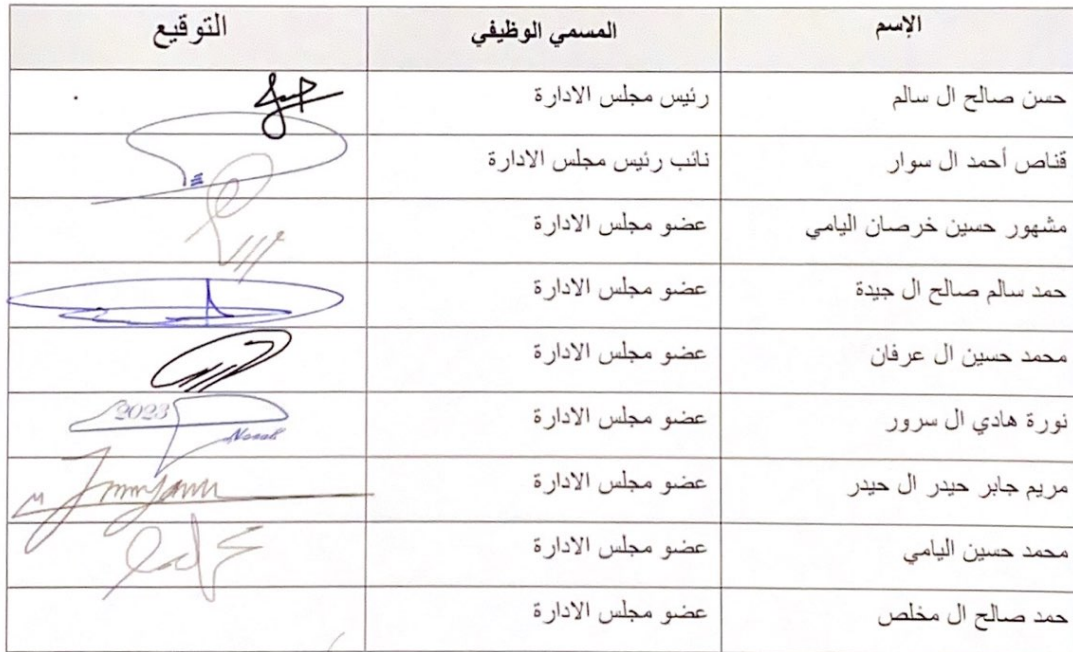 الإسم المسمي الوظيفي التوقيع
حسن صالح ال سالم رئيس مجلس الادارة
قناص أحمد ال سوار نائب رئيس مجلس الادارة
مشهور حسين خرصان اليامي عضو مجلس الادارة
حمد سالم صالح ال جيدة عضو مجلس الادارة
محمد حسين ال عرفان عضو مجلس الادارة
نورة هادي ال سرور عضو مجلس الادارة 2023 Norah
مريم جابر حيدر ال حيدر عضو مجلس الادارة
محمد حسين اليامي عضو مجلس الادارة
حمد صالح ال مخلص عضو مجلس الادارة